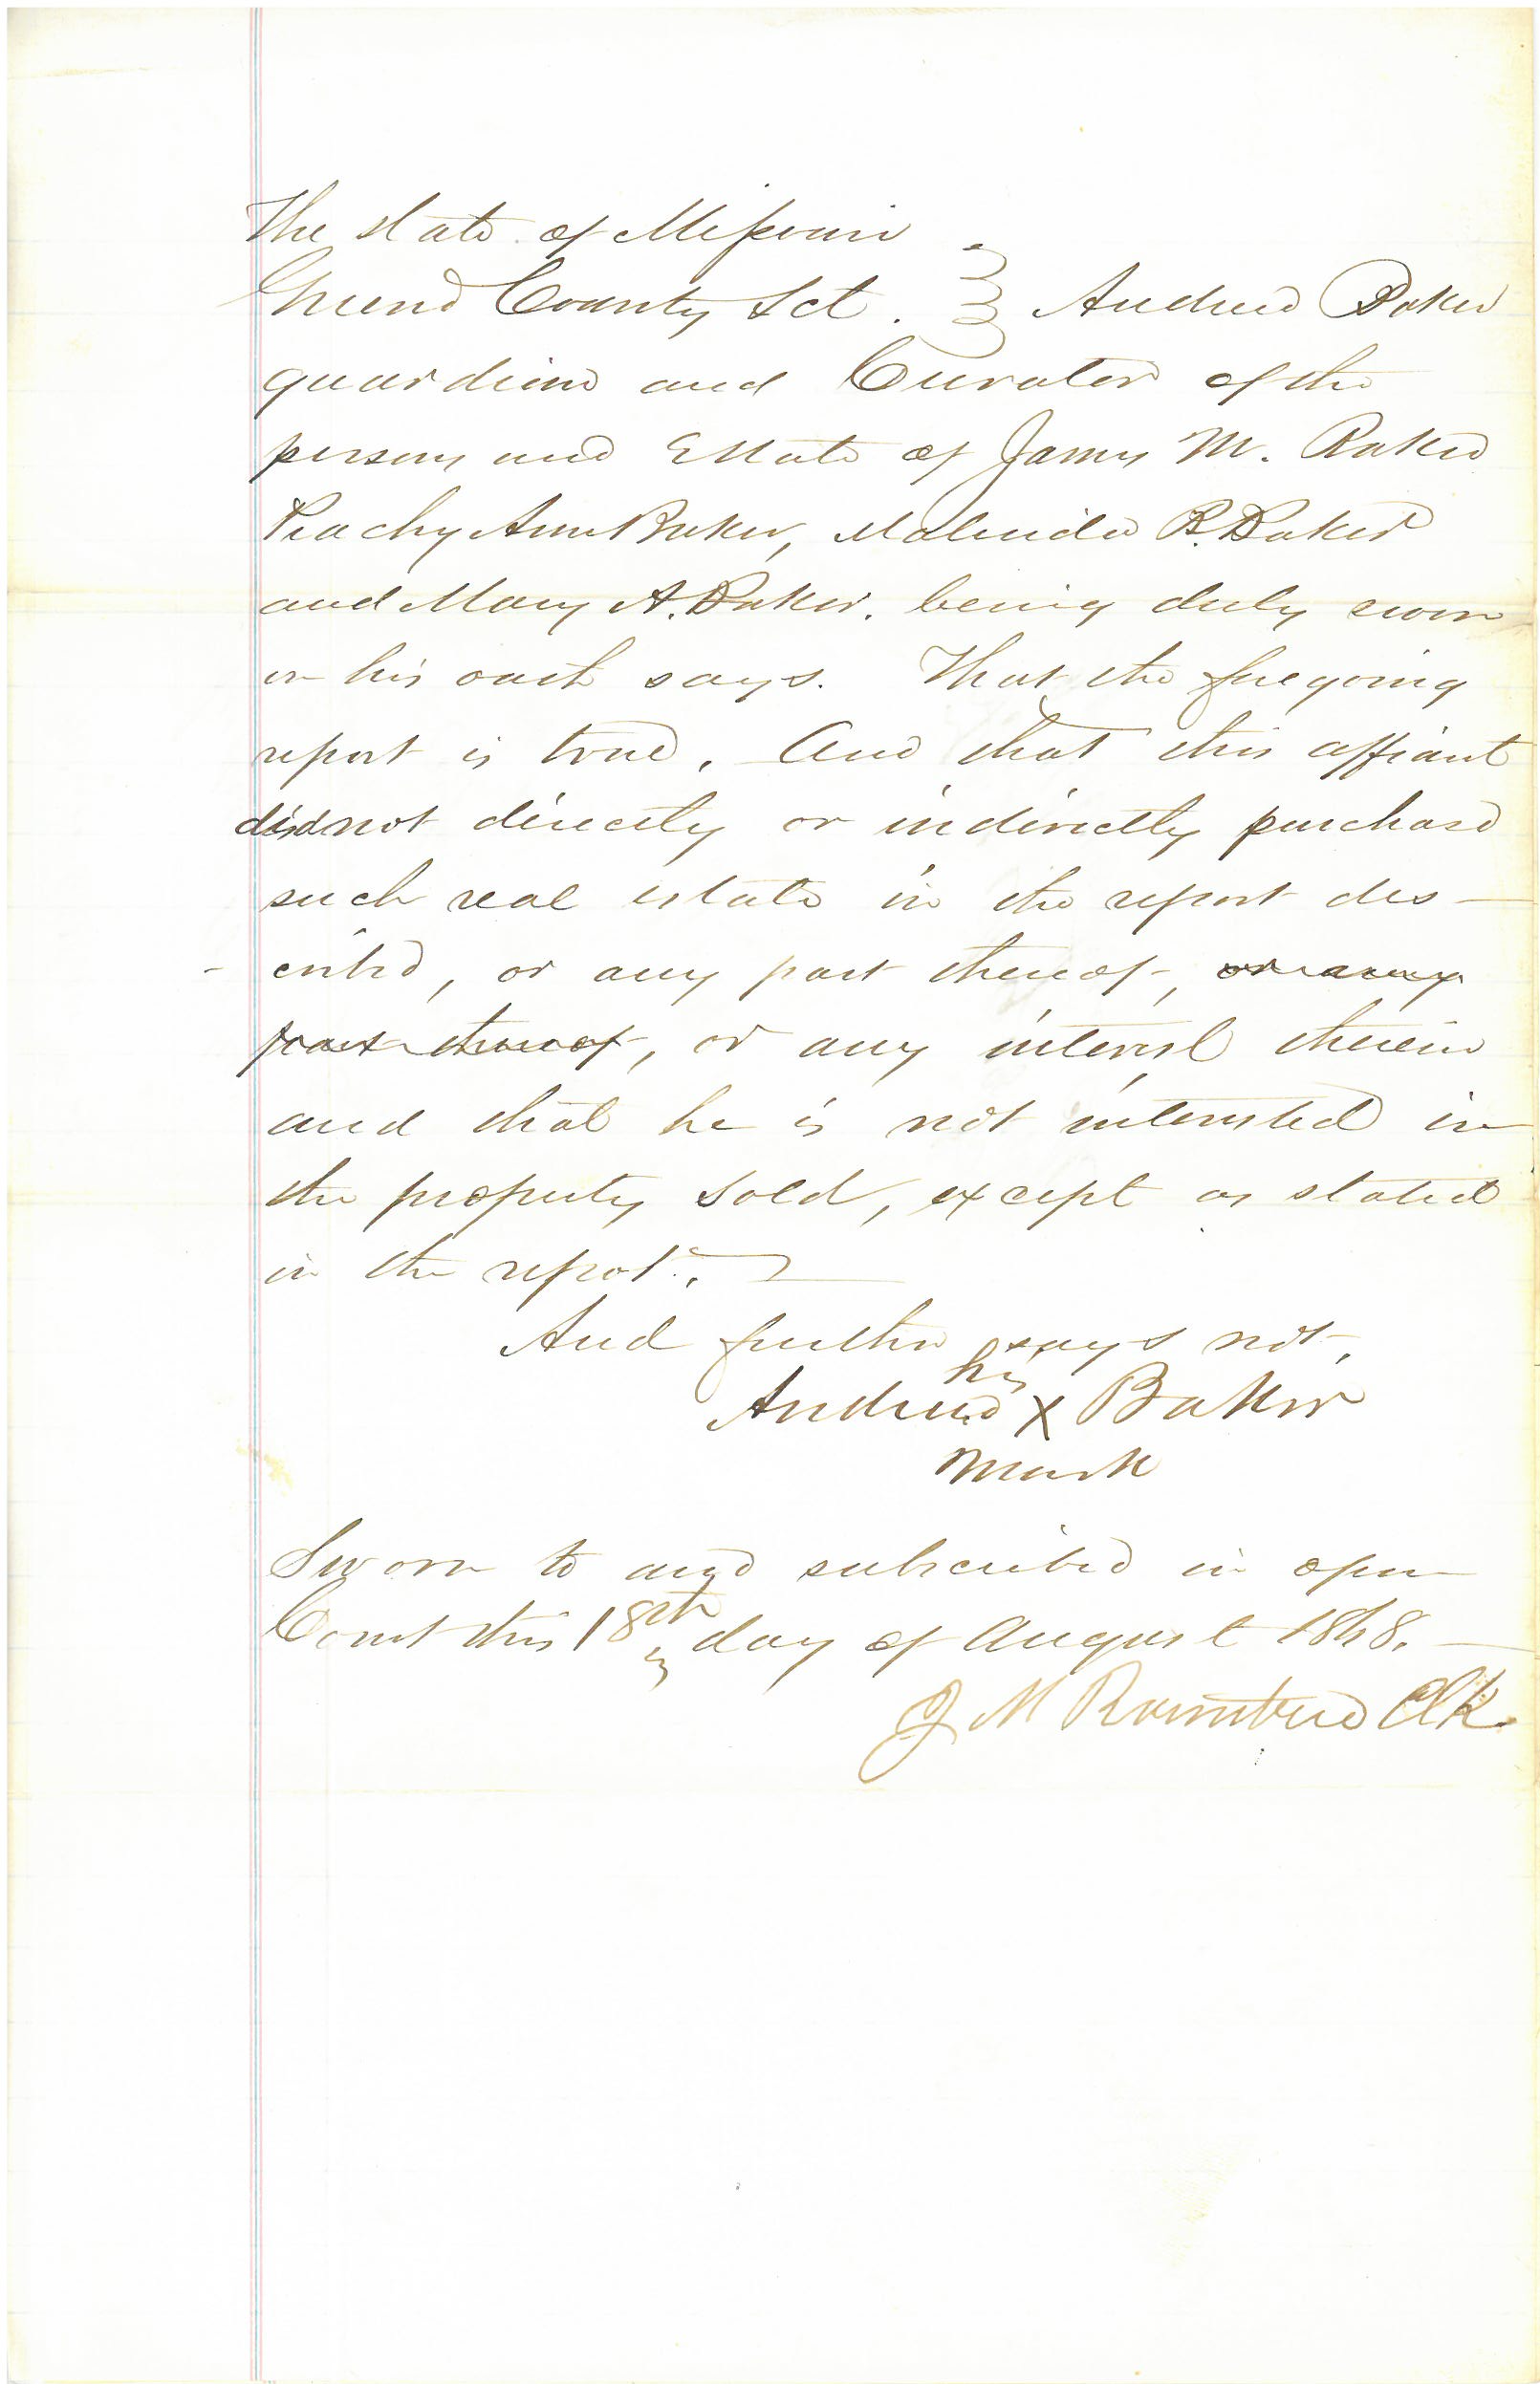 The State of Missouri
Greene County Sct. } Andrew Baker
guardian and Curator of the
persons and Estate of James M. Baker
Peachy Ann Baker, Malinda B. Baker
and Mary A. Baker. being duly sworn
on his oath says. That the foregoing
report is true. And that this affiant
did not directly or indirectly purchase
such real estate in the report des-
cribed, or any part thereof, or any
part thereof, or any interest therein
and that he is not interested in
the property sold, except as stated
in the report.
And further says not,
his
Andrew X Baker
mark
Sworn to and subscribed in open
Court this 18th day of August 1868.
J M Clk